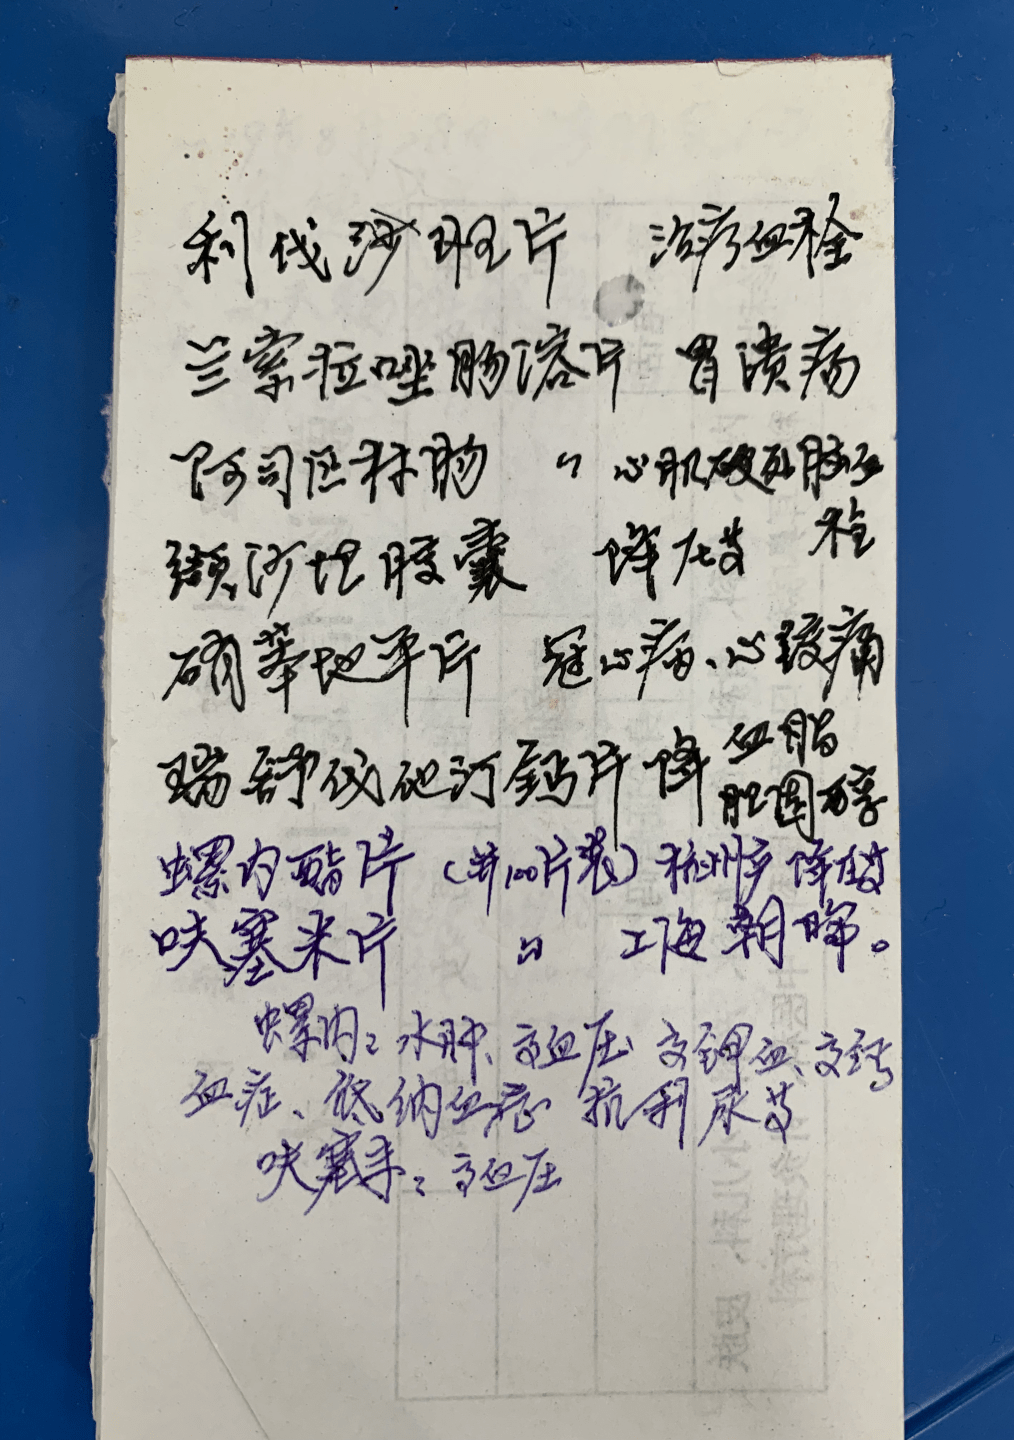 利伐沙班片 治疗血栓
兰索拉唑肠溶片 胃溃疡
阿司匹林肠 〃 心肌梗死脑血
栓
缬沙坦胶囊 降压药
硝苯地平片 冠心病、心绞痛
瑞舒伐他汀钙片 降血脂
胆固醇
螺内酯片 (共100片装) 杭州 降压药
呋塞米片 〃 上海朝晖。
螺内: 水肿、高血压 高钾血、高钙
血症、低纳血症 抗利尿药
呋塞米: 高血压